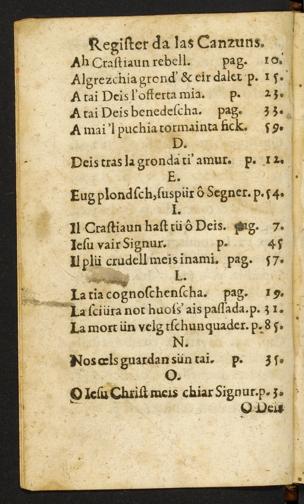 Regiſter da las Canzuns.
Ah Craſtiaun rebell. pag. 10.
Algrezchia grend' & eir dalet p. 15.
A tai Deis l'offerta mia. p. 23.
A tai Deis benedeſcha. pag. 33.
A mai 'l puchia tormainta fick. 59.
D.
Deis tras la gronda ti' amur. p. 12.
E.
Eug plondſch, ſuspür ô Segner. p. 54.
I.
Il Craſtiaun haſt tü ô Deis. pag. 7.
Ieſu vair Signur. p. 45
Il plü crudell meis inami. pag. 57.
L.
La tia cognoſchenſcha. pag. 19.
La ſciüra not huoſs' ais paſſada. p. 31.
La mort ün velg tſchunquader. p. 85.
N.
Nos œls guardan sün tai. p. 35.
O.
O Ieſu Chriſt meis chiar Signur. p. 3.
O Deis